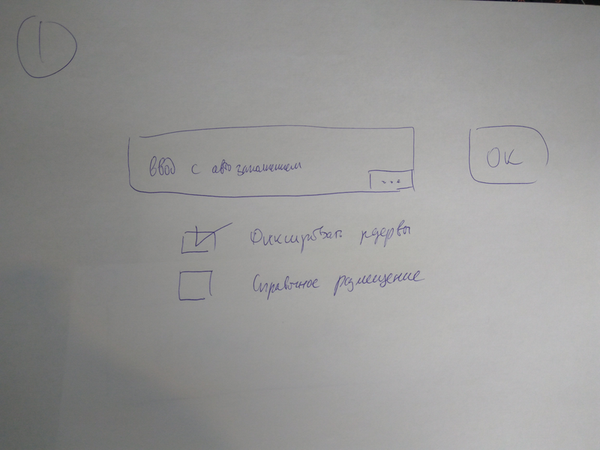 1
Ввод с автозаполнением
...
OK
Фиксировать резервы
Справочное размещение